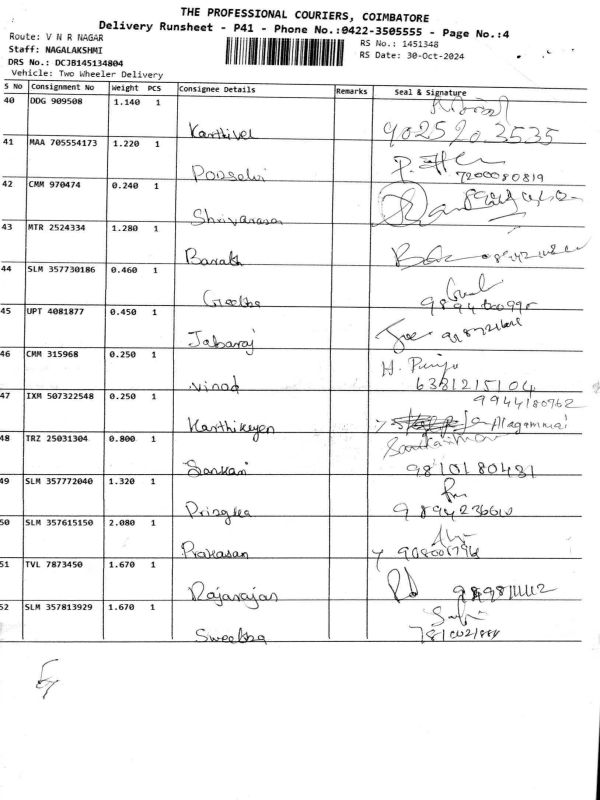 THE PROFESSIONAL COURIERS, COIMBATORE
Delivery Runsheet - P41 - Phone No.:0422-3505555 - Page No.:4
Route: V N R NAGAR
RS No.: 1451348
Staff: NAGALAKSHMI
RS Date: 30-Oct-2024
DRS No.: DCJB145134804
Vehicle: Two Wheeler Delivery
S No Consignment No Weight PCS Consignee Details Remarks Seal & Signature
40 DDG 909508 1.140 1
Karthivel 9025903535
41 MAA 705554173 1.220 1
Pooselvi 7200080819
42 CMM 970474 0.240 1
Shrivarasan
43 MTR 2524334 1.280 1
Barath
44 SLM 357730186 0.460 1
Geetha
45 UPT 4081877 0.450 1
Jabaraj
46 CMM 315968 0.250 1
H. Punjo
Vinod 6381215104
47 IXM 507322548 0.250 1
9944180762
Karthikeyen Alagammai
48 TRZ 25031304 0.800 1
Sankari 9810180481
49 SLM 357772040 1.320 1
Priegka
50 SLM 357615150 2.080 1
Prakasan
51 TVL 7873450 1.670 1
Rajarajan
52 SLM 357813929 1.670 1
Swetha